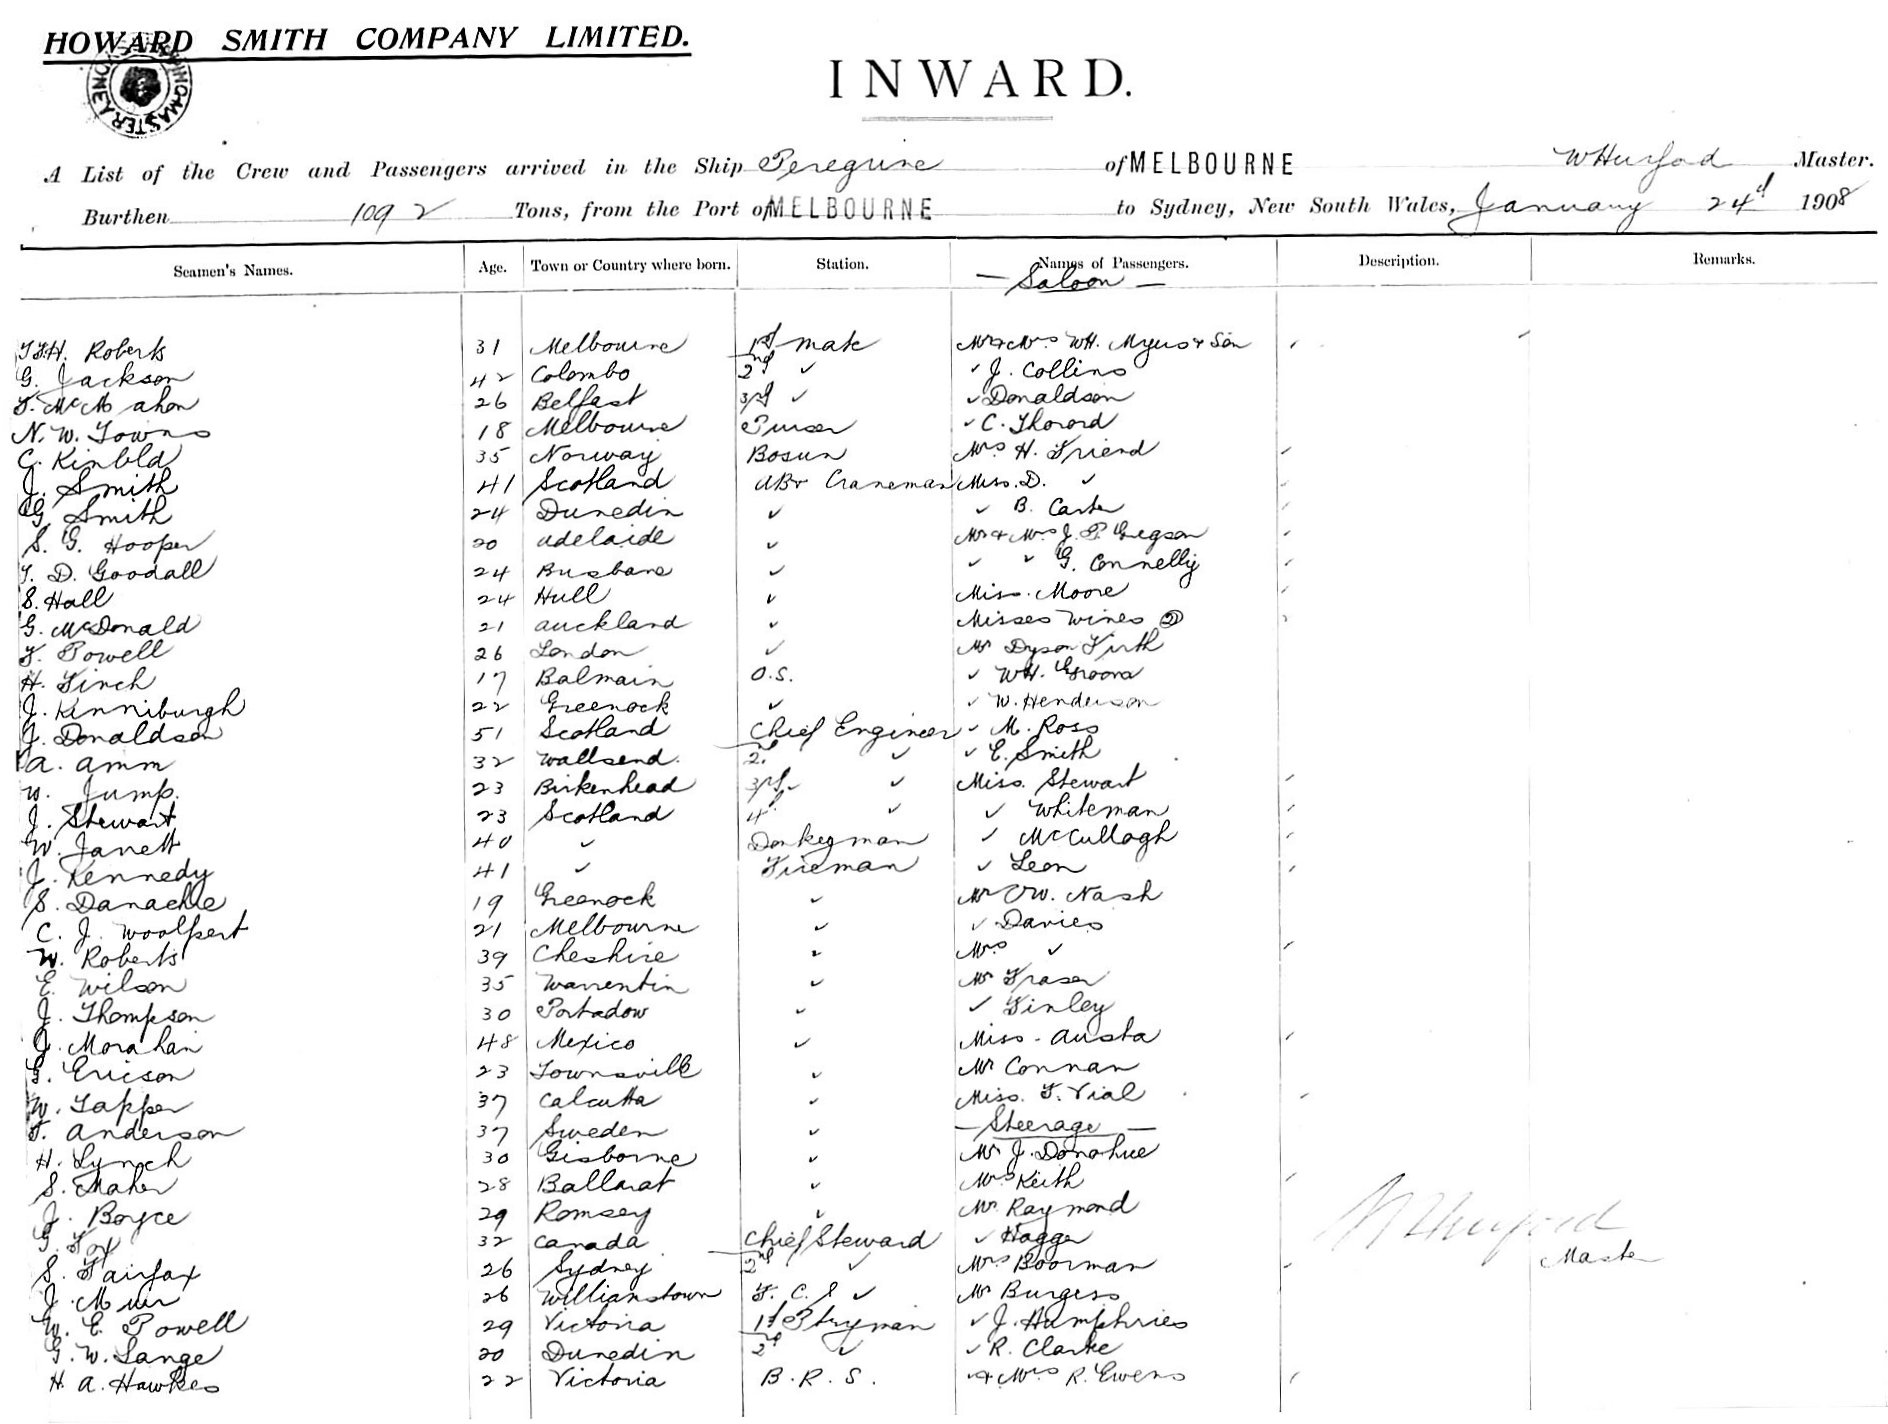 HOWARD SMITH COMPANY LIMITED.
INWARD.
A List of the Crew and Passengers arrived in the Ship Peregrine of MELBOURNE WHurford Master.
Burthen 1092 Tons, from the Port of MELBOURNE to Sydney, New South Wales, January 24th 1908
Seamen's Names. Age. Town or Country where born. Station. Names of Passengers. Description. Remarks.
— Saloon —
Roberts 31 Melbourne 1st mate Mr & Mrs WH. Myers & Son
G. Jackson 42 Colombo 2nd ✓ ✓ J. Collins
McMahon 26 Belfast 3rd ✓ ✓ Donaldson
N. W. Towns 18 Melbourne Purser ✓ C. Thorord
C. 35 Norway Bosun Mrs H. Friend
J. Smith 41 Scotland AB & Craneman Miss. D. ✓
G. Smith 24 Dunedin ✓ ✓ B. Carter
S. G. Hooper 20 Adelaide ✓ Mr & Mrs J. P. Gregson
T. D. Goodall 24 Brisbane ✓ ✓ ✓ G. Connelly
S. Hall 24 Hull ✓ Miss. Moore
G. McDonald 21 Auckland ✓ Misses Wines (2)
F. Powell 26 London ✓ Mr Dyson Firth
H. Finch 17 Balmain O.S. ✓ WH. Groom
J. Kinniburgh 22 Greenock ✓ ✓ W. Henderson
J. Donaldson 51 Scotland Chief Engineer ✓ M. Ross
A. Amm 32 Wallsend. 2nd ✓ ✓ E. Smith
W. Jump. 23 Birkenhead 3rd ✓ Miss. Stewart
J. Stewart 23 Scotland 4th ✓ ✓ Whiteman
W. 40 ✓ Donkeyman ✓ McCullagh
J. Kennedy 41 ✓ Fireman ✓ Leon
S. Danachie 19 Greenock ✓ Mr OW. Nash
C. J. Woolpert 21 Melbourne ✓ ✓ Davies
W. Roberts 39 Cheshire ✓ Mrs ✓
E. Wilson 35 Warrentin ✓ Mr Fraser
J. Thompson 30 Portadow ✓ ✓ Finley
J. Morahan 48 Mexico ✓ Miss - Austa
G. Ericson 23 Townsville ✓ Mr Connan
W. Tapper 37 Calcutta ✓ Miss. F. Vial
F. Anderson 37 Sweden ✓ — Steerage —
H. Lynch 30 Gisborne ✓ Mr J. Donohue
S. Maher 28 Ballarat ✓ Mrs Keith
J. Boyce 29 Romsey ✓ Mr Raymond
G. Fox 32 Canada Chief Steward ✓ Hagga
S. Fairfax 26 Sydney 2nd ✓ Mrs Boorman
J. Muir 26 Williamstown F. C. S ✓ Mr Burgess
W. E. Powell 29 Victoria 1st Ptryman ✓ J. Humphries
G. W. Lange 20 Dunedin 2nd ✓ ✓ R. Clarke
H. A. Hawkes 22 Victoria B. R. S. ✓ & Mrs R. Ewens
WHurford
Master